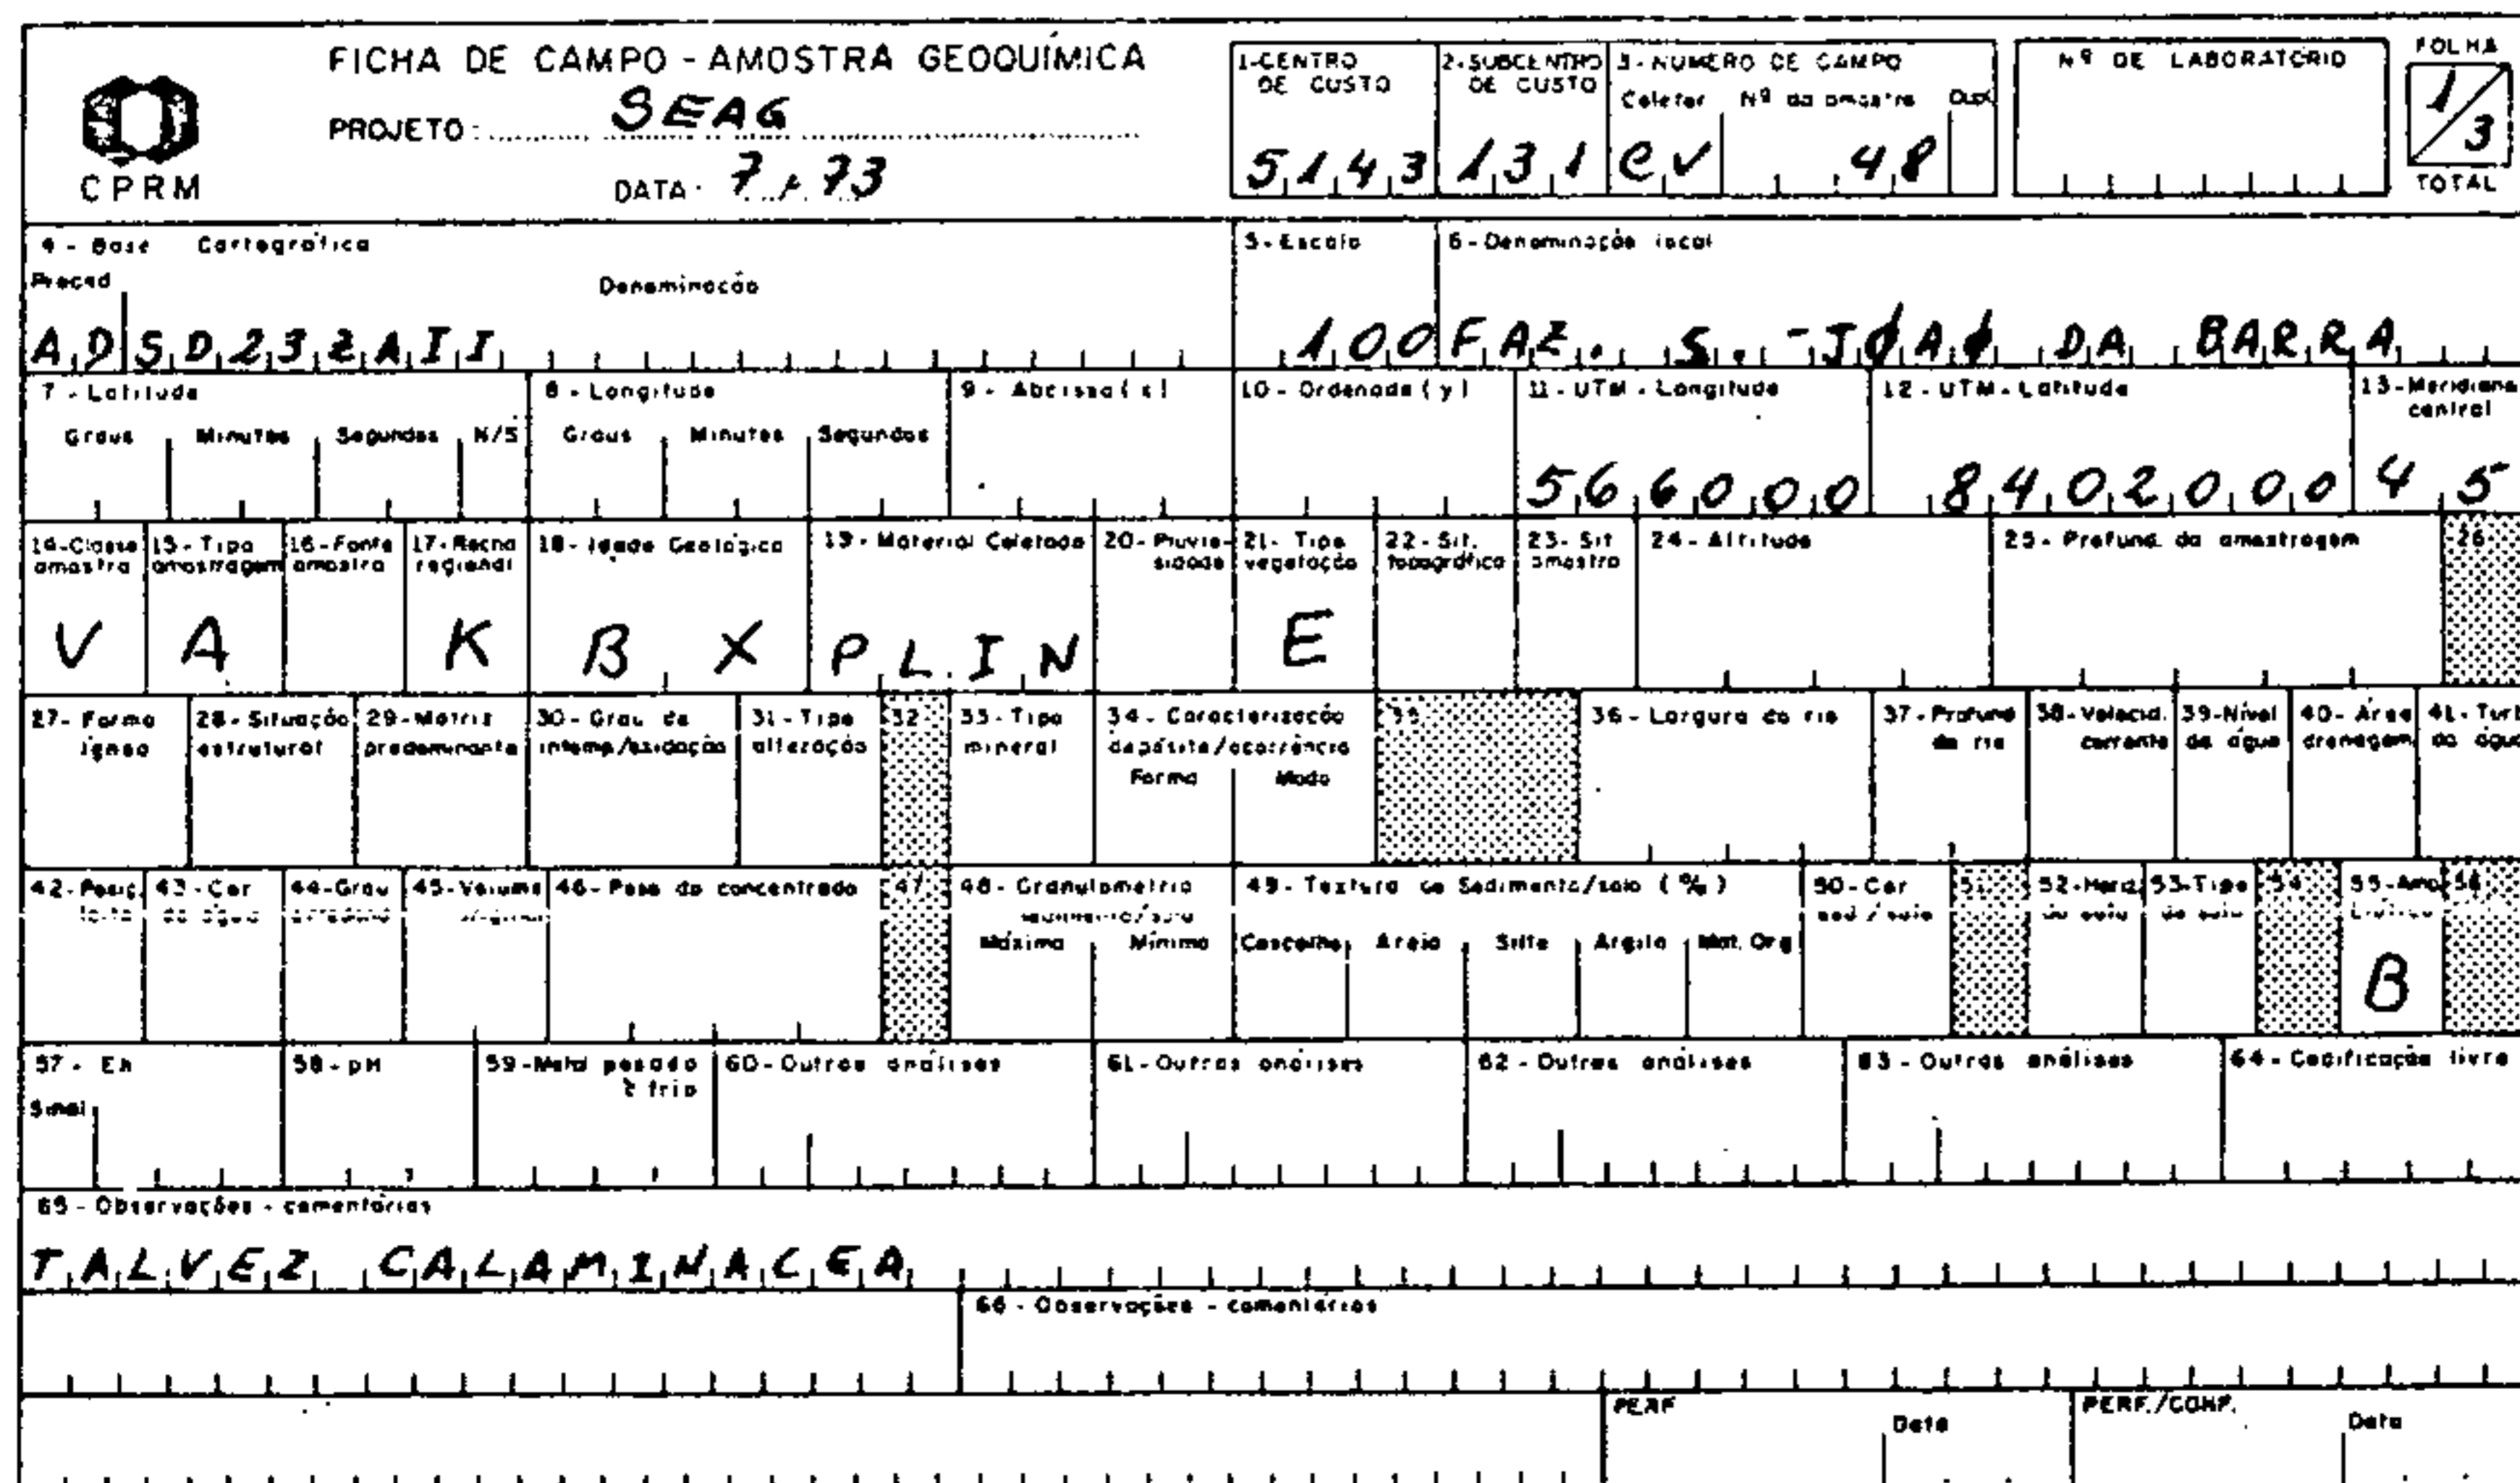 FICHA DE CAMPO - AMOSTRA GEOQUÍMICA
PROJETO: SEAG
DATA: 7 / 73
CPRM
1-CENTRO DE CUSTO
5143
2-SUBCENTRO DE CUSTO
131
3-NUMERO DE CAMPO
Coletor Nº da amostra Dupl
CV 48
Nº DE LABORATÓRIO
FOLHA
1/3
TOTAL
4 - Base Cartográfica
Preced Denominação
AD SD23ZAII
5 - Escala
100
6 - Denominação local
FAZ. S. -JØAØ DA BARRA
7 - Latitude
Graus Minutos Segundos N/S
8 - Longitude
Graus Minutos Segundos
9 - Abcissa (x)
10 - Ordenada (y)
11 - UTM - Longitude
566000
12 - UTM - Latitude
8402000
13 - Meridiano central
45
14-Classe amostra
V
15 - Tipo amostragem
A
16-Fonte amostra
17-Rocha regional
K
18 - Idade Geológica
B X
19 - Material Coletado
PLIN
20 - Pluviosidade
21 - Tipo vegetação
E
22 - Sit. topográfica
23 - Sit amostra
24 - Altitude
25 - Profund. da amostragem
26
27 - Forma ígnea
28 - Situação estrutural
29 - Matriz predominante
30 - Grau de intemp./oxidação
31 - Tipo alteração
32
33 - Tipo mineral
34 - Caracterização depósito/ocorrência
Forma Modo
35
36 - Largura do rio
37 - Profund do rio
38 - Velocid. corrente
39-Nível da água
40 - Área drenagem
41 - Turb da água
42 - Posiç.
43 - Cor da água
44 - Grau
45 - Volume
46 - Peso do concentrado
47
48 - Granulometria sedimento/solo
Máxima Mínima
49 - Textura de Sedimento/solo (%)
Cascalho Areia Silte Argila Mat. Org
50 - Cor sed / solo
51
52 - Horiz. do solo
53-Tipo do solo
54
55 - Amb
B
56
57 - Eh
Sinal
58 - pH
59-Metal pesado à frio
60 - Outras análises
61 - Outras análises
62 - Outras análises
63 - Outras análises
64 - Codificação livre
65 - Observações - comentários
TALVEZ CALAMINACEA
66 - Observações - comentários
PERF Data
PERF./CONF. Data